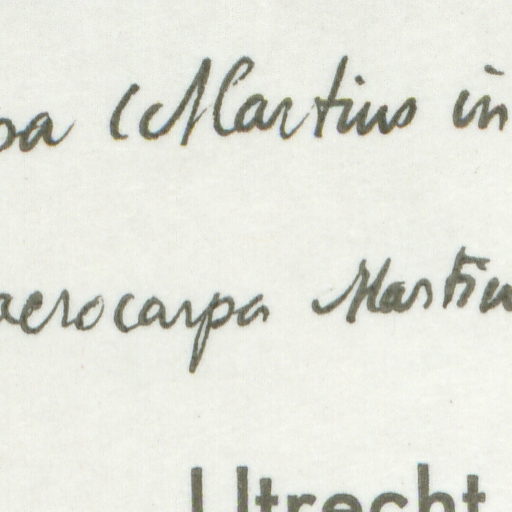 pa (Martius in
acrocarpa Martiu
Utrecht